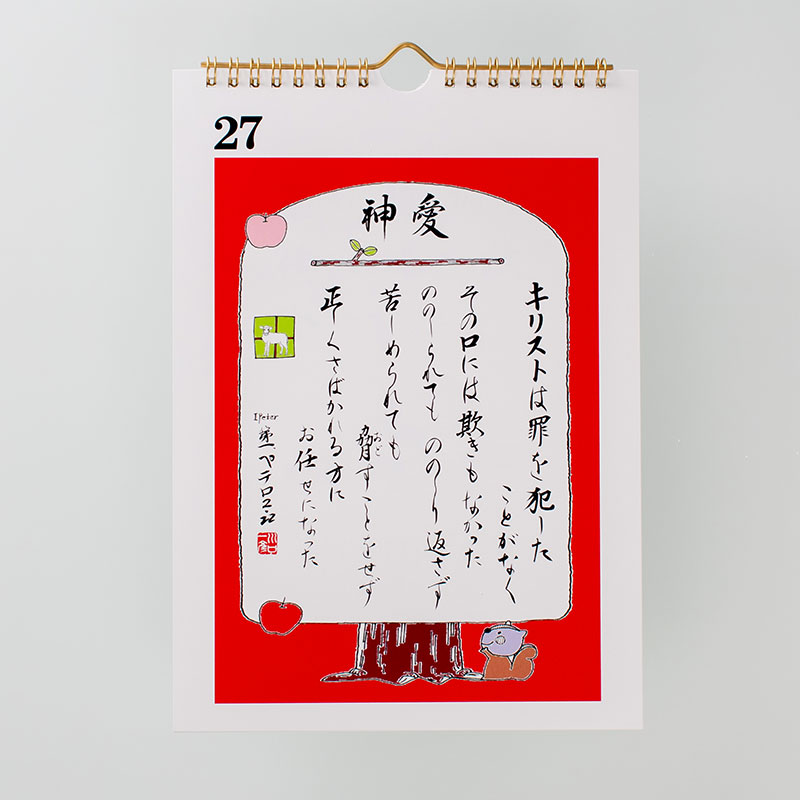 27
神愛
キリストは罪を犯した
ことがなく
その口には欺きもなかった
ののしられても ののしり返さず
苦しめられても
脅すことをせず
おど
正しくさばかれる方に
お任せになった
I Peter
第一ペテロ